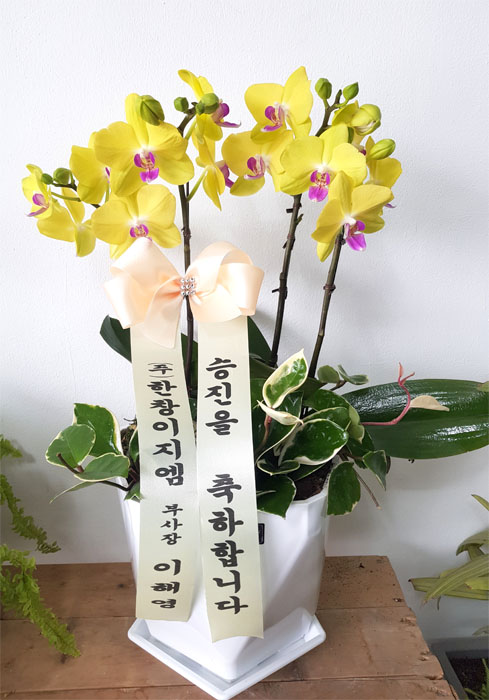 승진을 축하합니다
(주)한창이지엠 부사장 이해영